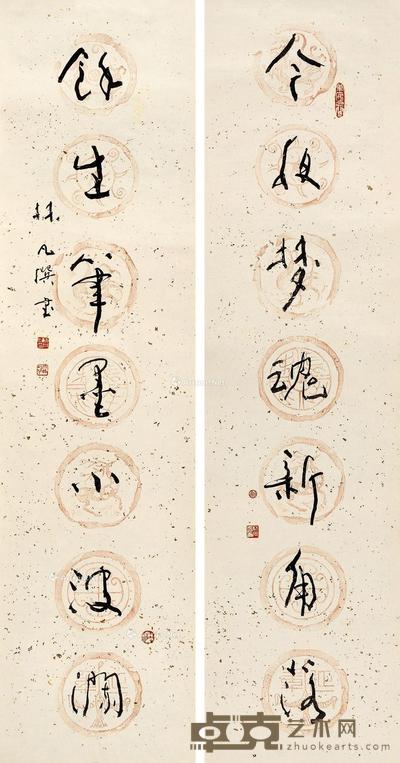 今夜梦魂新角落
餘生筆墨小波澜
林凡撰書
卓克艺术网
zhuokearts.com